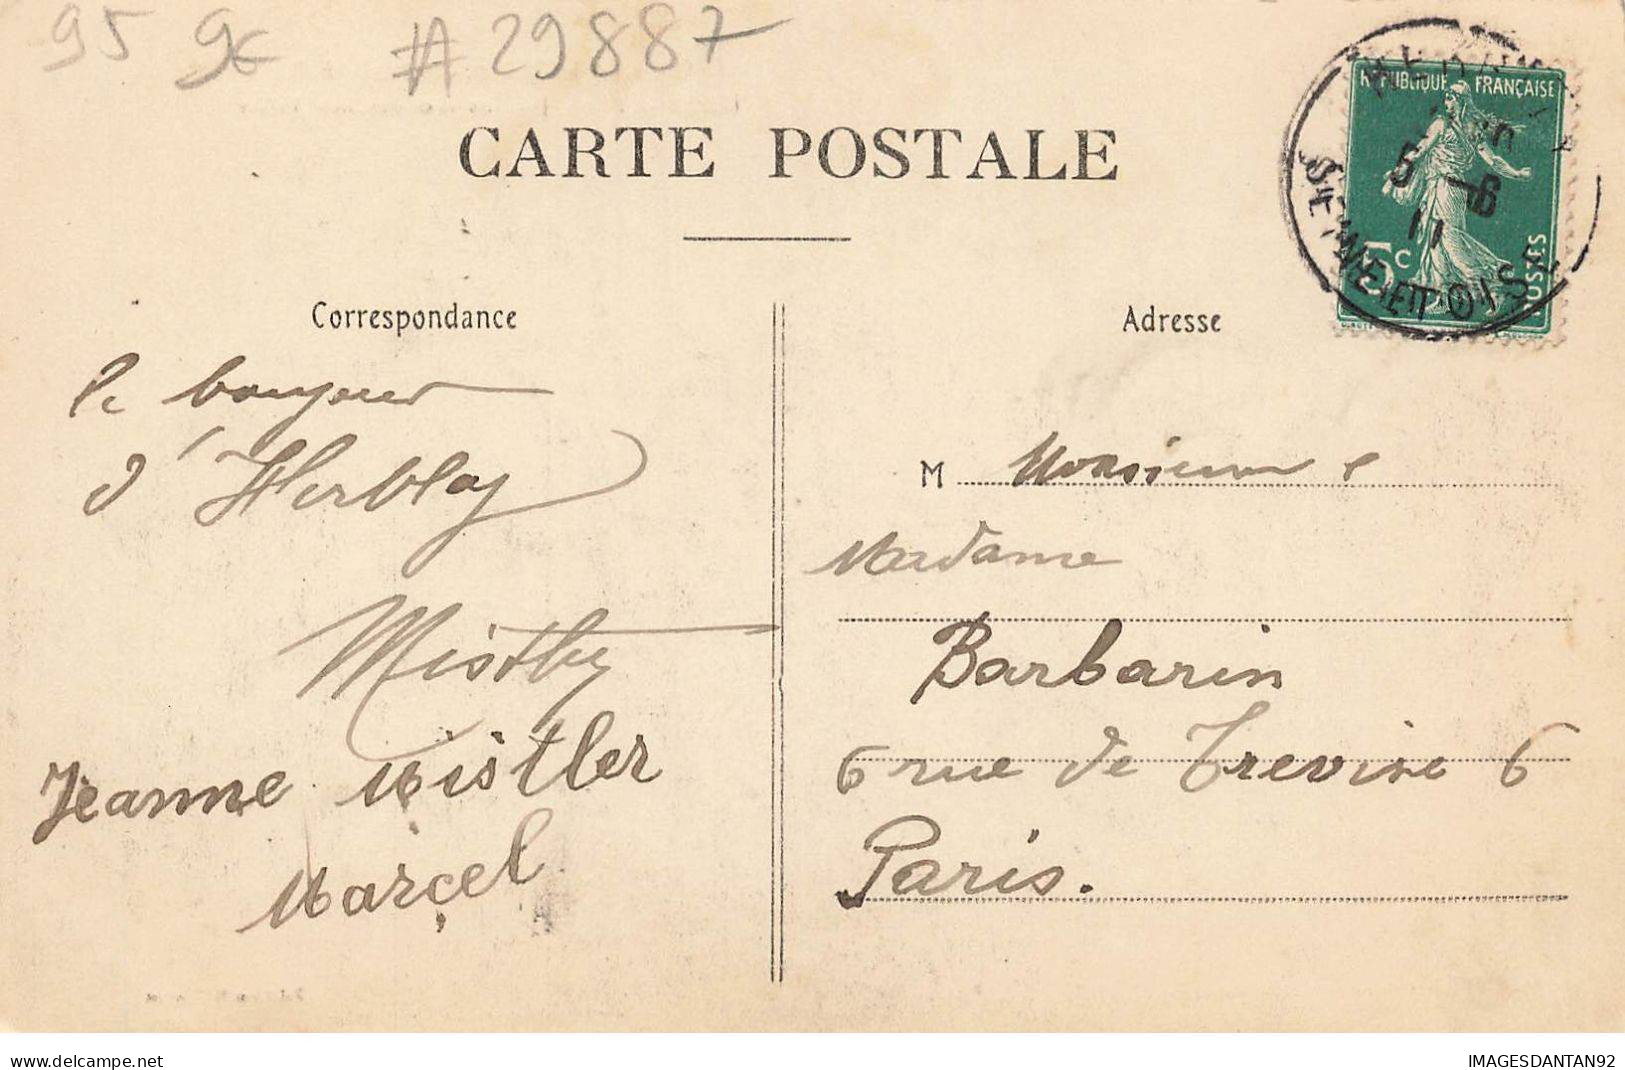 95 9€ #29887
CARTE POSTALE
REPUBLIQUE FRANÇAISE
5 -6
11
5c
POSTES
SEINE-ET-OISE
Correspondance
le bonjour
d'Herblay
Mistler
Jeanne Mistler
Marçel
Adresse
M Monsieur e
Madame
Barbarin
6 rue de Trevise 6
Paris.
www.delcampe.net
IMAGESDANTAN92